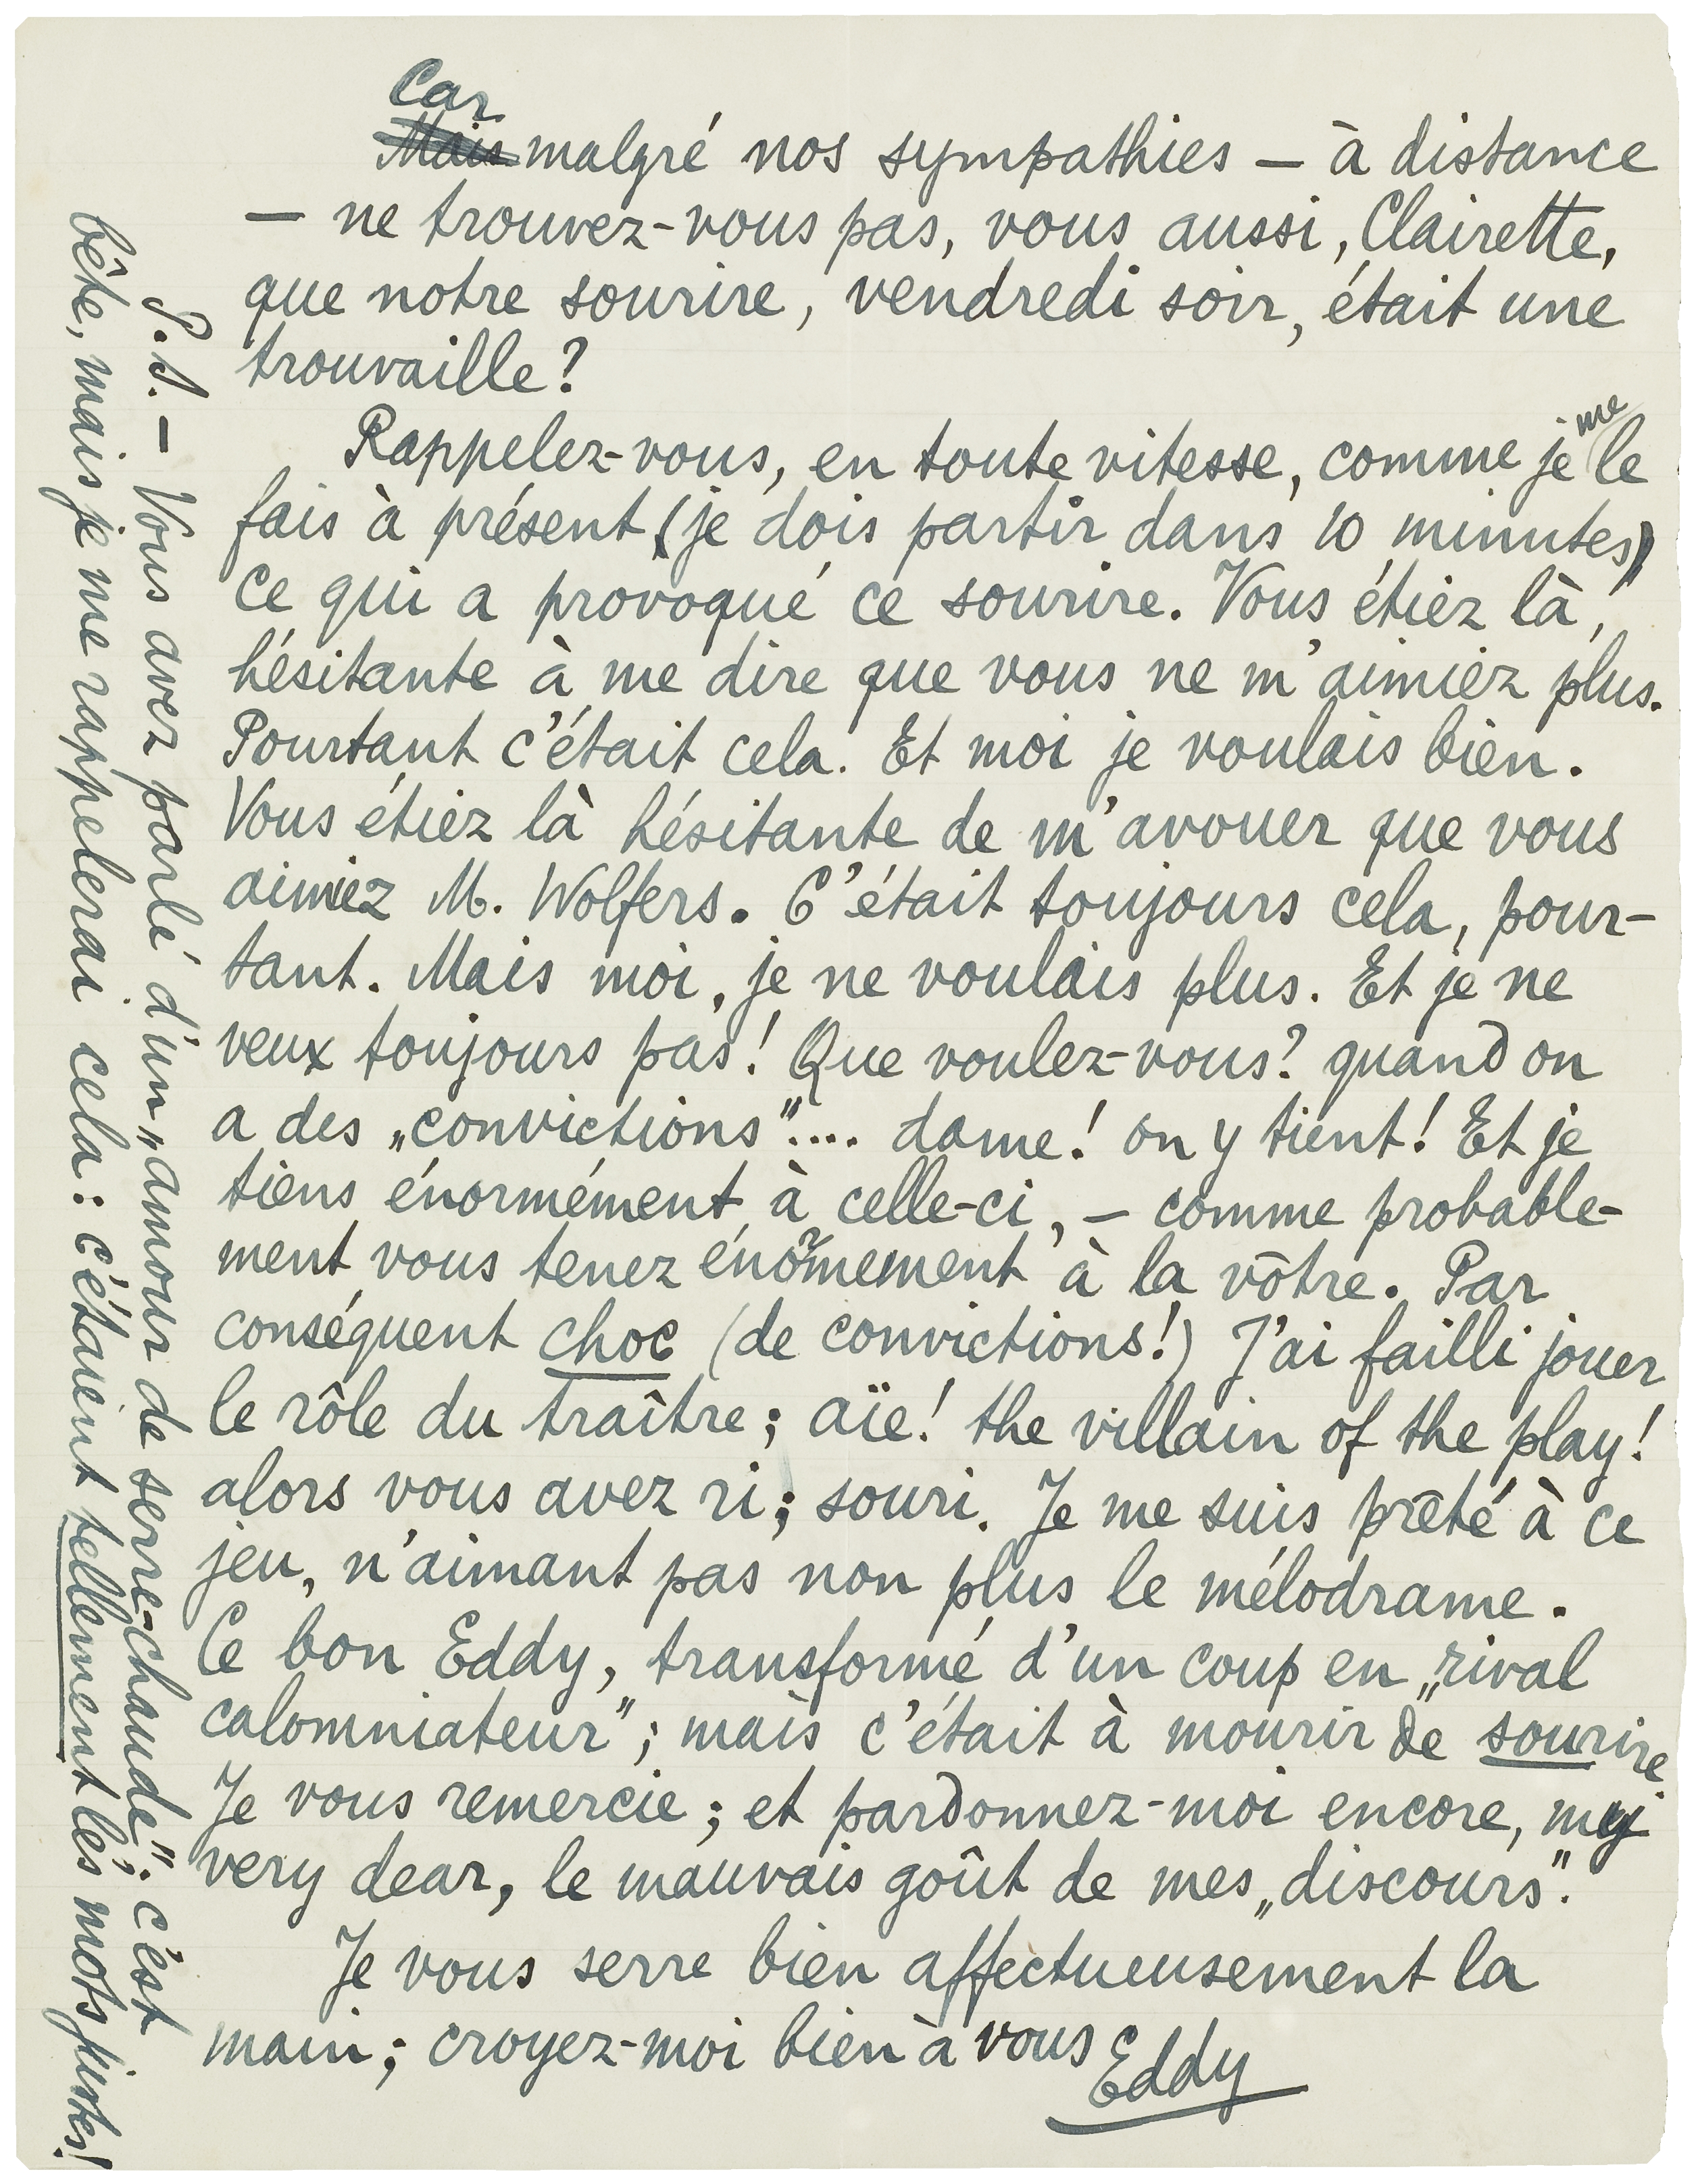 Car
Mais malgré nos sympathies — à distance
— ne trouvez-vous pas, vous aussi, Clairette,
que notre sourire, vendredi soir, était une
trouvaille?
Rappelez-vous, en toute vitesse, comme je me le
fais à présent (je dois partir dans 10 minutes)
ce qui a provoqué ce sourire. Vous étiez là,
hésitante à me dire que vous ne m'aimiez plus.
Pourtant c'était cela. Et moi je voulais bien.
Vous étiez là hésitante de m'avouer que vous
aimiez M. Wolfers. C'était toujours cela, pour-
tant. Mais moi, je ne voulais plus. Et je ne
veux toujours pas! Que voulez-vous? quand on
a des „convictions".... dame! on y tient! Et je
tiens énormément à celle-ci, — comme probable-
ment vous tenez énormement à la vôtre. Par
conséquent choc (de convictions!) J'ai failli jouer
le rôle du traître; aïe! the villain of the play!
alors vous avez ri; souri. Je me suis prêté à ce
jeu, n'aimant pas non plus le mélodrame.
Ce bon Eddy, transformé d'un coup en „rival
calomniateur"; mais c'était à mourir de sourire.
Je vous remercie; et pardonnez-moi encore, my
very dear, le mauvais goût de mes „discours".
Je vous serre bien affectueusement la
main; croyez-moi bien à vous
Eddy
P.S. — Vous avez parlé d'un „amour de serre-chaude"; c'est
bête, mais je me rappelerai cela: c'étaient tellement les mots justes!